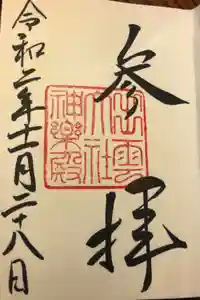 参拝
出雲
大社
神楽殿
令和二年十一月二十八日